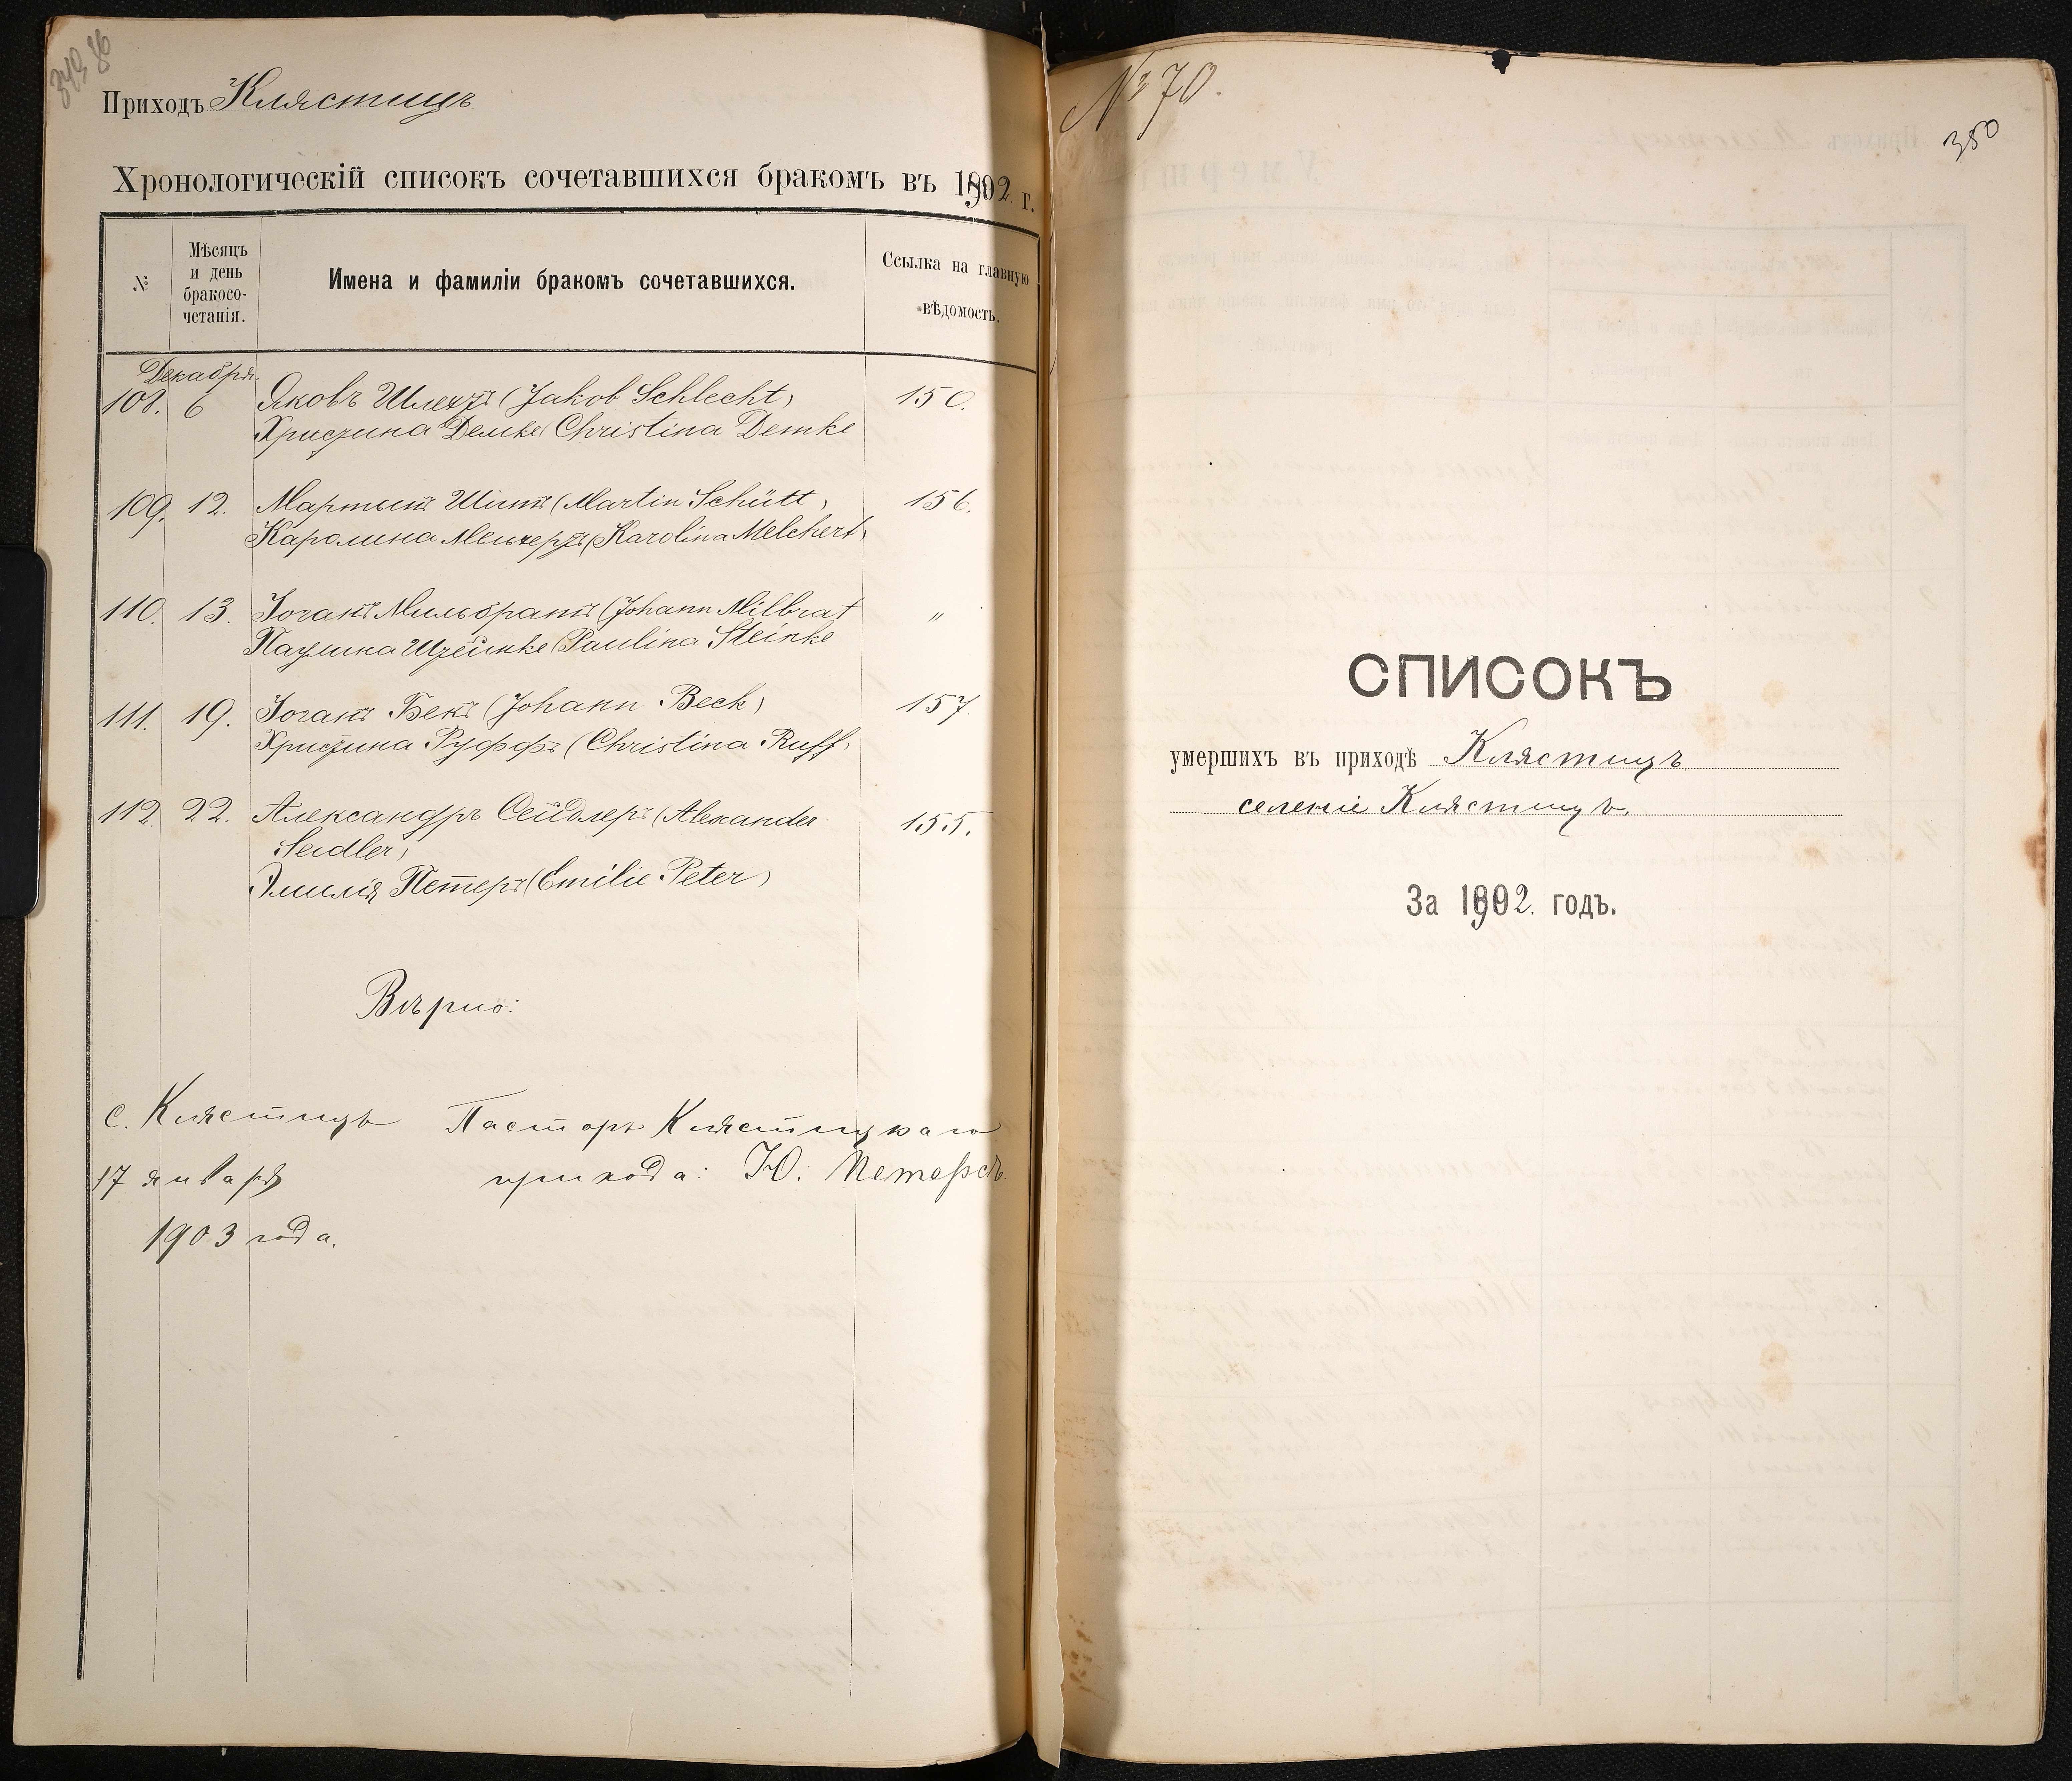 Приходъ Клястицъ
Хронологическій списокъ сочетавшихся бракомъ въ 1902 г.
№
Мѣсяцъ и день бракосо-четанія.
Имена и фамиліи бракомъ сочетавшихся.
Ссылка на главную вѣдомость.
Декабря
108. 6 Яковъ Шлехтъ (Jakob Schlecht) 150.
Христина Демке (Christina Demke
109. 12. Мартынъ Шитъ (Martin Schütt) 156.
Каролина Мельхертъ (Karolina Melchert)
110. 13. Іоганъ Мильбратъ (Johann Milbrat "
Паулина Штейнке (Paulina Steinke
111. 19. Іоганъ Бекъ (Johann Beck) 157.
Христина Руффъ (Christina Ruff)
112. 22. Александръ Сейдлеръ (Alexander 155.
Seidler)
Эмилія Петеръ (Emilie Peter)
Вѣрно:
с. Клястицъ Пасторъ Клястицкаго
17 января прихода: Ю. Петерсъ.
1903 года.
№ 70.
350
СПИСОКЪ
умершихъ въ приходѣ Клястицъ
селеніе Клястицъ.
За 1902. годъ.